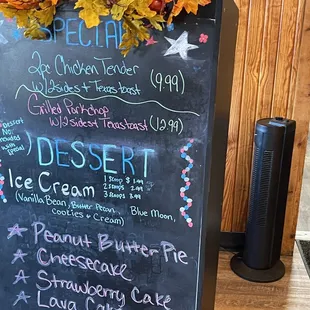 SPECIAL
2pc Chicken Tender
W/2 sides + Texas toast (9.99)
Grilled Porkchop
W/2 sides + Texas toast (12.99)
Dessert
No.
included
with
special
DESSERT
Ice Cream
1 scoop $1.99
2 scoops 2.99
3 scoops 3.99
(Vanilla Bean, Butter Pecan, Blue Moon,
cookies & Cream)
Peanut Butter Pie
Cheesecake
Strawberry Cake
Lava Cake